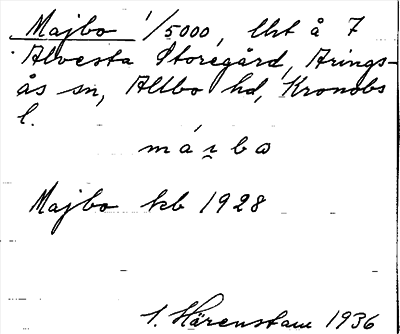 Majbo 1/5000, Ust å 7
Alvesta Storegård, Arings-
ås sn, Allbo hd, Kronobs
l.
má i̯ bω
Majbo kb 1928
1. Härenstam 1936